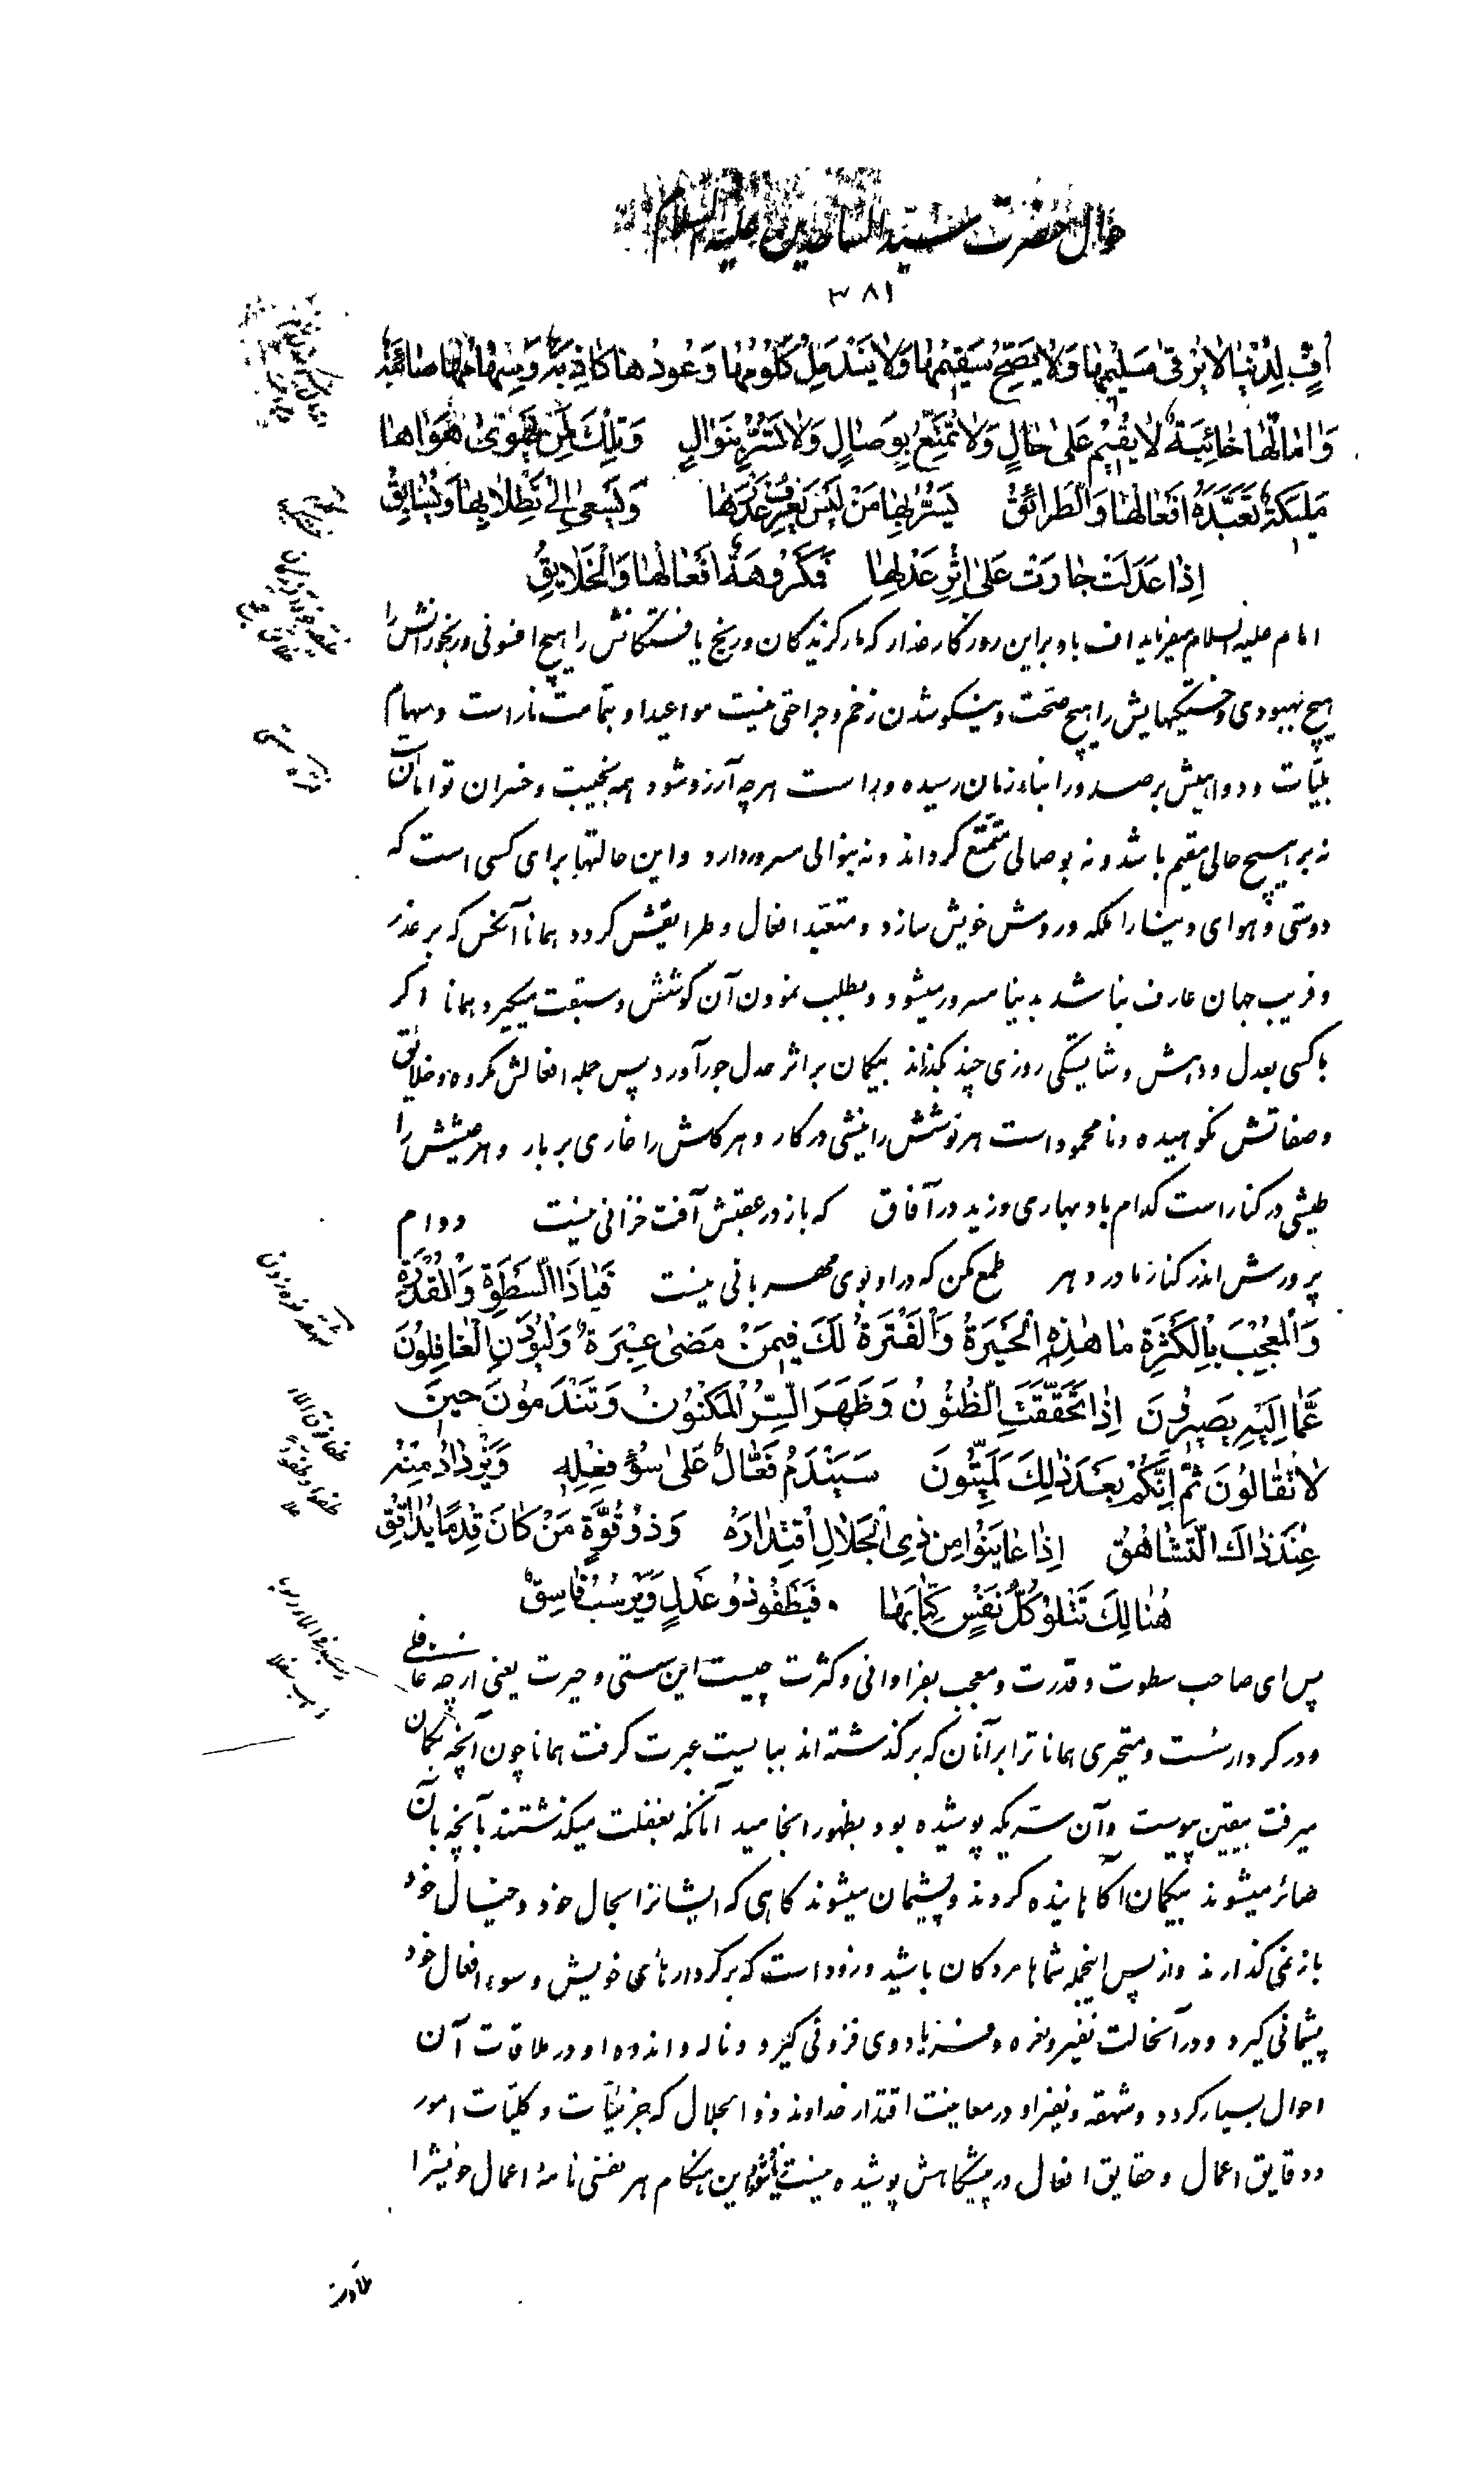 حال حضرت سید الساجدین علیه السلام
٣٨١
اُفٍّ لِدُنْیٰا لاٰ یُرْقیٰ سَلیمُهٰا وَلاٰ یَصِحُّ سَقیمُهٰا وَلاٰ یَنْدَمِلُ کُلُومُهٰا وَعُودُهٰا کٰاذِبَةٌ وَسِهٰامُهٰا صٰائِبَةٌ
وَاٰمٰالُهٰا خٰائِبَةٌ لاٰ یُقیمُ عَلیٰ حٰالٍ وَلاٰ تُمَتِّعُ بِوِصٰالٍ وَلاٰ تَسُرُّ بِنَوٰالٍ وَتِلْكَ لِمَنْ یَهْویٰ هَوٰاهٰا
مَلیکَةٌ تَعَبَّدَهُ اَفْعٰالُهٰا وَالطَّرٰائِقُ یَسُرُّ بِهٰا مَنْ لَیْسَ یَعْرِفُ غَدْرَهٰا وَیَسْعیٰ اِلیٰ تَطْلاٰبِهٰا وَیُسٰابِقُ
اِذٰا عَدَلَتْ جٰارَتْ عَلیٰ اِثْرِ عَدْلِهٰا فَمَکْرُوهَةٌ اَفْعٰالُهٰا وَالْخَلاٰیِقُ
امام علیه السلام میفرماید اف باد براین روزکار غدار که مارکزیدکان ورنج یافتکانش را هیچ افسونی ورنجورانش را
هیچ بهبودی وخستکیهایش را هیچ صحّت ونیکو شدن زخم وجراحتی نیست مواعید او بتمامت ناراست وسهام
بلیّات ودواهیش بر صدور ابناء زمان رسیده وراست هرچه آرزو شود همه بخیبت وخسران توامان
نه بر هیچ حالی مقیم باشد ونه بوصالی متمتّع کرداند ونه بنوالی مسرور دارد واین حالتها برای کسی است که
دوستی وهوای دینا را ملکه وروش خویش سازد ومتعبّد افعال وطرایقش کردد همانا آنکس که بر غدر
وفریب جهان عارف نباشد بدنیا مسرور میشود وبطلب نمودن آن کوشش وسبقت میکیرد همانا اکر
با کسی بعدل ودهش وشایستکی روزی چند بکذراند بیکمان بر اثر عدل جور آورد پس جمله افعالش مکروه وخلائق
وصفاتش نکوهیده ونامحمود است هر نوشش را نیشی در کار وهر کلش را خاری بر بار وهر عیشش را
طیشی در کنار است کدام باد بهاری وزید در آفاق که باز در عقبش آفت خزانی نیست ودوام
پرورش اندر کنار مادر دهر طمع مکن که در او بوی مهربانی نیست فَیٰا ذَا السَّطْوَةِ وَالْقُدْرَةِ
وَالْمُعْجِبَ بِالْکَثْرَةِ مٰا هٰذِهِ الْحَیْرَةُ وَالْفَتْرَةُ لَكَ فیمَنْ مَضیٰ عِبْرَةٌ وَلْیُؤْذَنِ الْغٰافِلُونَ
عَمّٰا اِلَیْهِ یَصیرُونَ اِذٰا تَحَقَّقَتِ الظُّنُونُ وَظَهَرَ السِّرُّ الْمَکْنُونُ وَتَنْدَمُونَ حینَ
لاٰ تُقٰالُونَ ثُمَّ اِنَّکُمْ بَعْدَ ذٰلِكَ لَمَیِّتُونَ سَیَنْدَمُ فَعّٰالٌ عَلیٰ سُوءِ فِعْلِهِ وَیَزْدٰادُ مِنْهُ
عِنْدَ ذٰاكَ التَّشٰاهُقُ اِذٰا عٰایَنُوا مِنْ ذِی الْجَلاٰلِ اقْتِدٰارَهُ وَذُو قُوَّةٍ مَنْ کٰانَ قِدْمًا یُدٰاقِقُ
هُنٰالِكَ تَتْلُو کُلُّ نَفْسٍ کِتٰابَهٰا فَیَطْفُو ذُو عَدْلٍ وَیَرْسُبُ فٰاسِقٌ
پس ای صاحب سطوت وقدرت ومعجب بفراوانی وکثرت چیست این سستی وحیرت یعنی ازچه غافلی
ودر کردار سُست ومتحیری همانا ترا بر آنان که برکذشته اند ببایست عبرت کرفت همانا چون آنچه بکمان
میرفت بیقین پیوست وآن ستریکه پوشیده بود بظهور انجامید آنانکه بغفلت میکذشتند بآنچه بآن
صائر میشوند بیکمان آکاهانیده کردند وپشیمان میشوند کاهی که ایشانرا بحال خود وخیال خود
باز نمی کذارند واز پس اینجمله شماها مردکان باشید وزود است که بر کردارهای خویش وسوء افعال خود
پشیمانی کیرد ودر آنحالت نفیر ونعره وفریاد وی فزونی کیرد وناله واندوه او در ملاقات آن
احوال بسیار کردد وشهقه ونفیر او در معاینت اقتدار خداوند ذو الجلال که جزئیّات وکلیّات امور
ودقایق اعمال وحقایق افعال در پیشکاهش پوشیده نیست این هنکام هر نفسی نامهٔ اعمال خویشرا